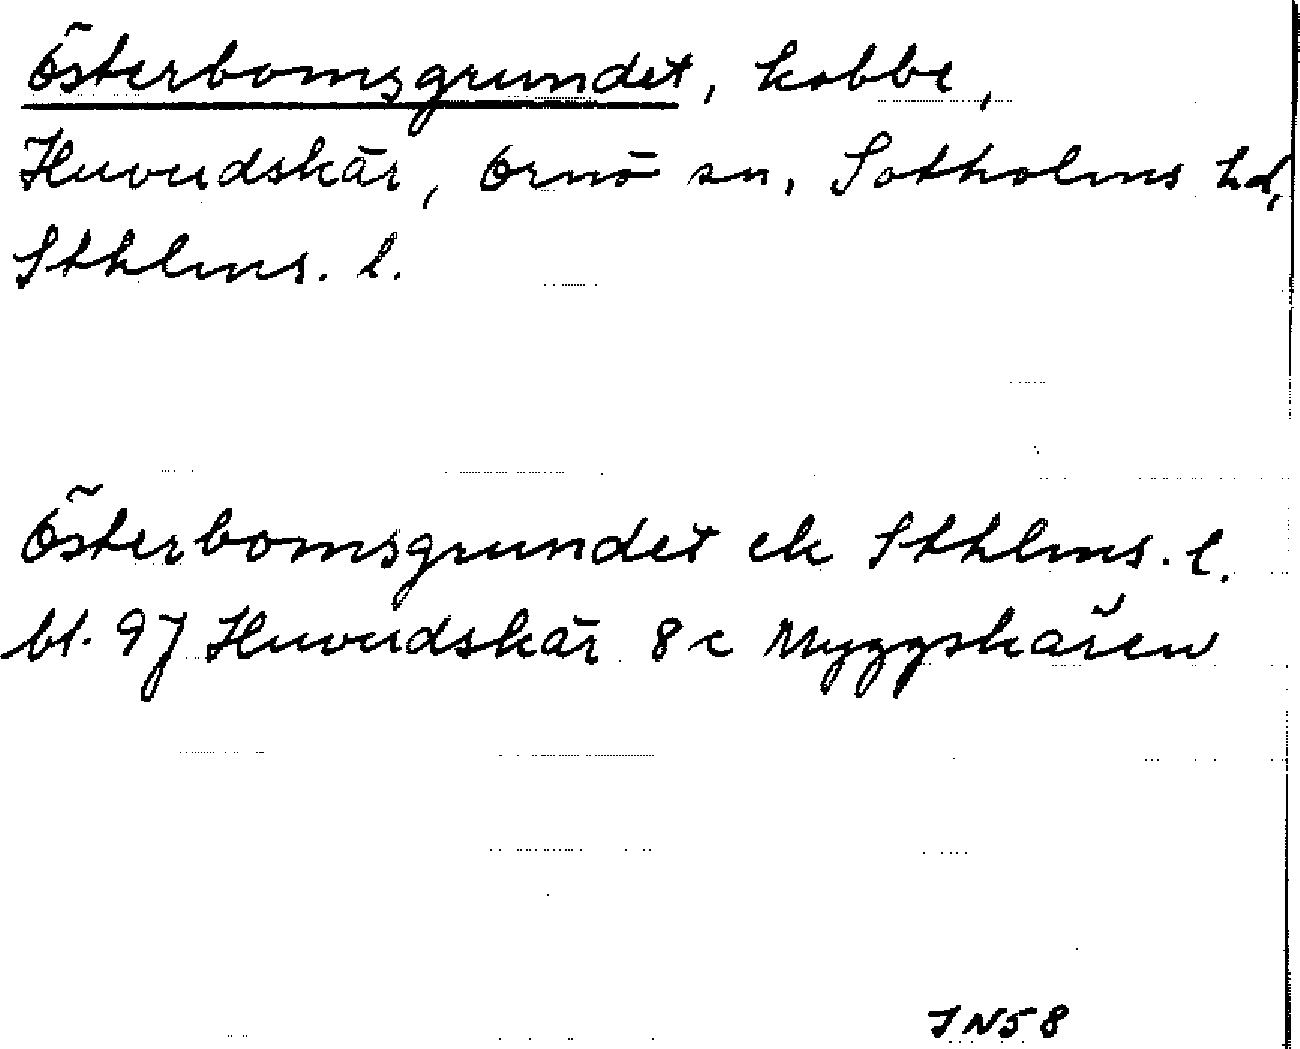 Österbomsgrundet, kobbe,
Huvudskär, Ornö sn, Sotholms hd,
Sthlms. l.
Österbomsgrundet ek Sthlms. l.
bl. 97 Huvudskär 8 c Myggskären
JN58